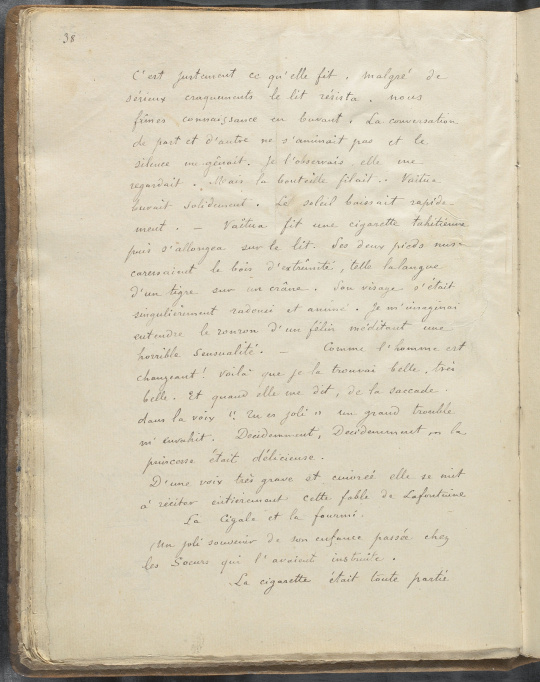 38
C'est justement ce qu'elle fit. malgré de
sérieux craquements le lit résista. nous
fîmes connaissance en buvant. La conversation
de part et d'autre ne s'animait pas et le
silence me gênait. Je l'observais, elle me
regardait. Mais la bouteille filait. Vaïtua
buvait solidement. Le soleil baissait rapide-
ment. — Vaïtua fit une cigarette tahitienne
puis s'allongea sur le lit. Ses deux pieds nus
caressaient le bois d'extrémité, telle la langue
d'un tigre sur un crâne. Son visage s'était
singulièrement radouci et animé. Je m'imaginai
entendre le ronron d'un félin méditant une
horrible sensualité. — Comme l'homme est
changeant! voilà que je la trouvai belle, très
belle. Et quand elle me dit, de la saccade
dans la voix "Tu es joli" un grand trouble
m'envahit. Décidemment, Décidemment, la
princesse était délicieuse.
D'une voix très grave et cuivrée elle se mit
à réciter entièrement cette fable de Lafontaine
La Cigale et la fourmi.
Un joli souvenir de son enfance passée chez
les Soeurs qui l'avaient instruite.
La cigarette était toute partie